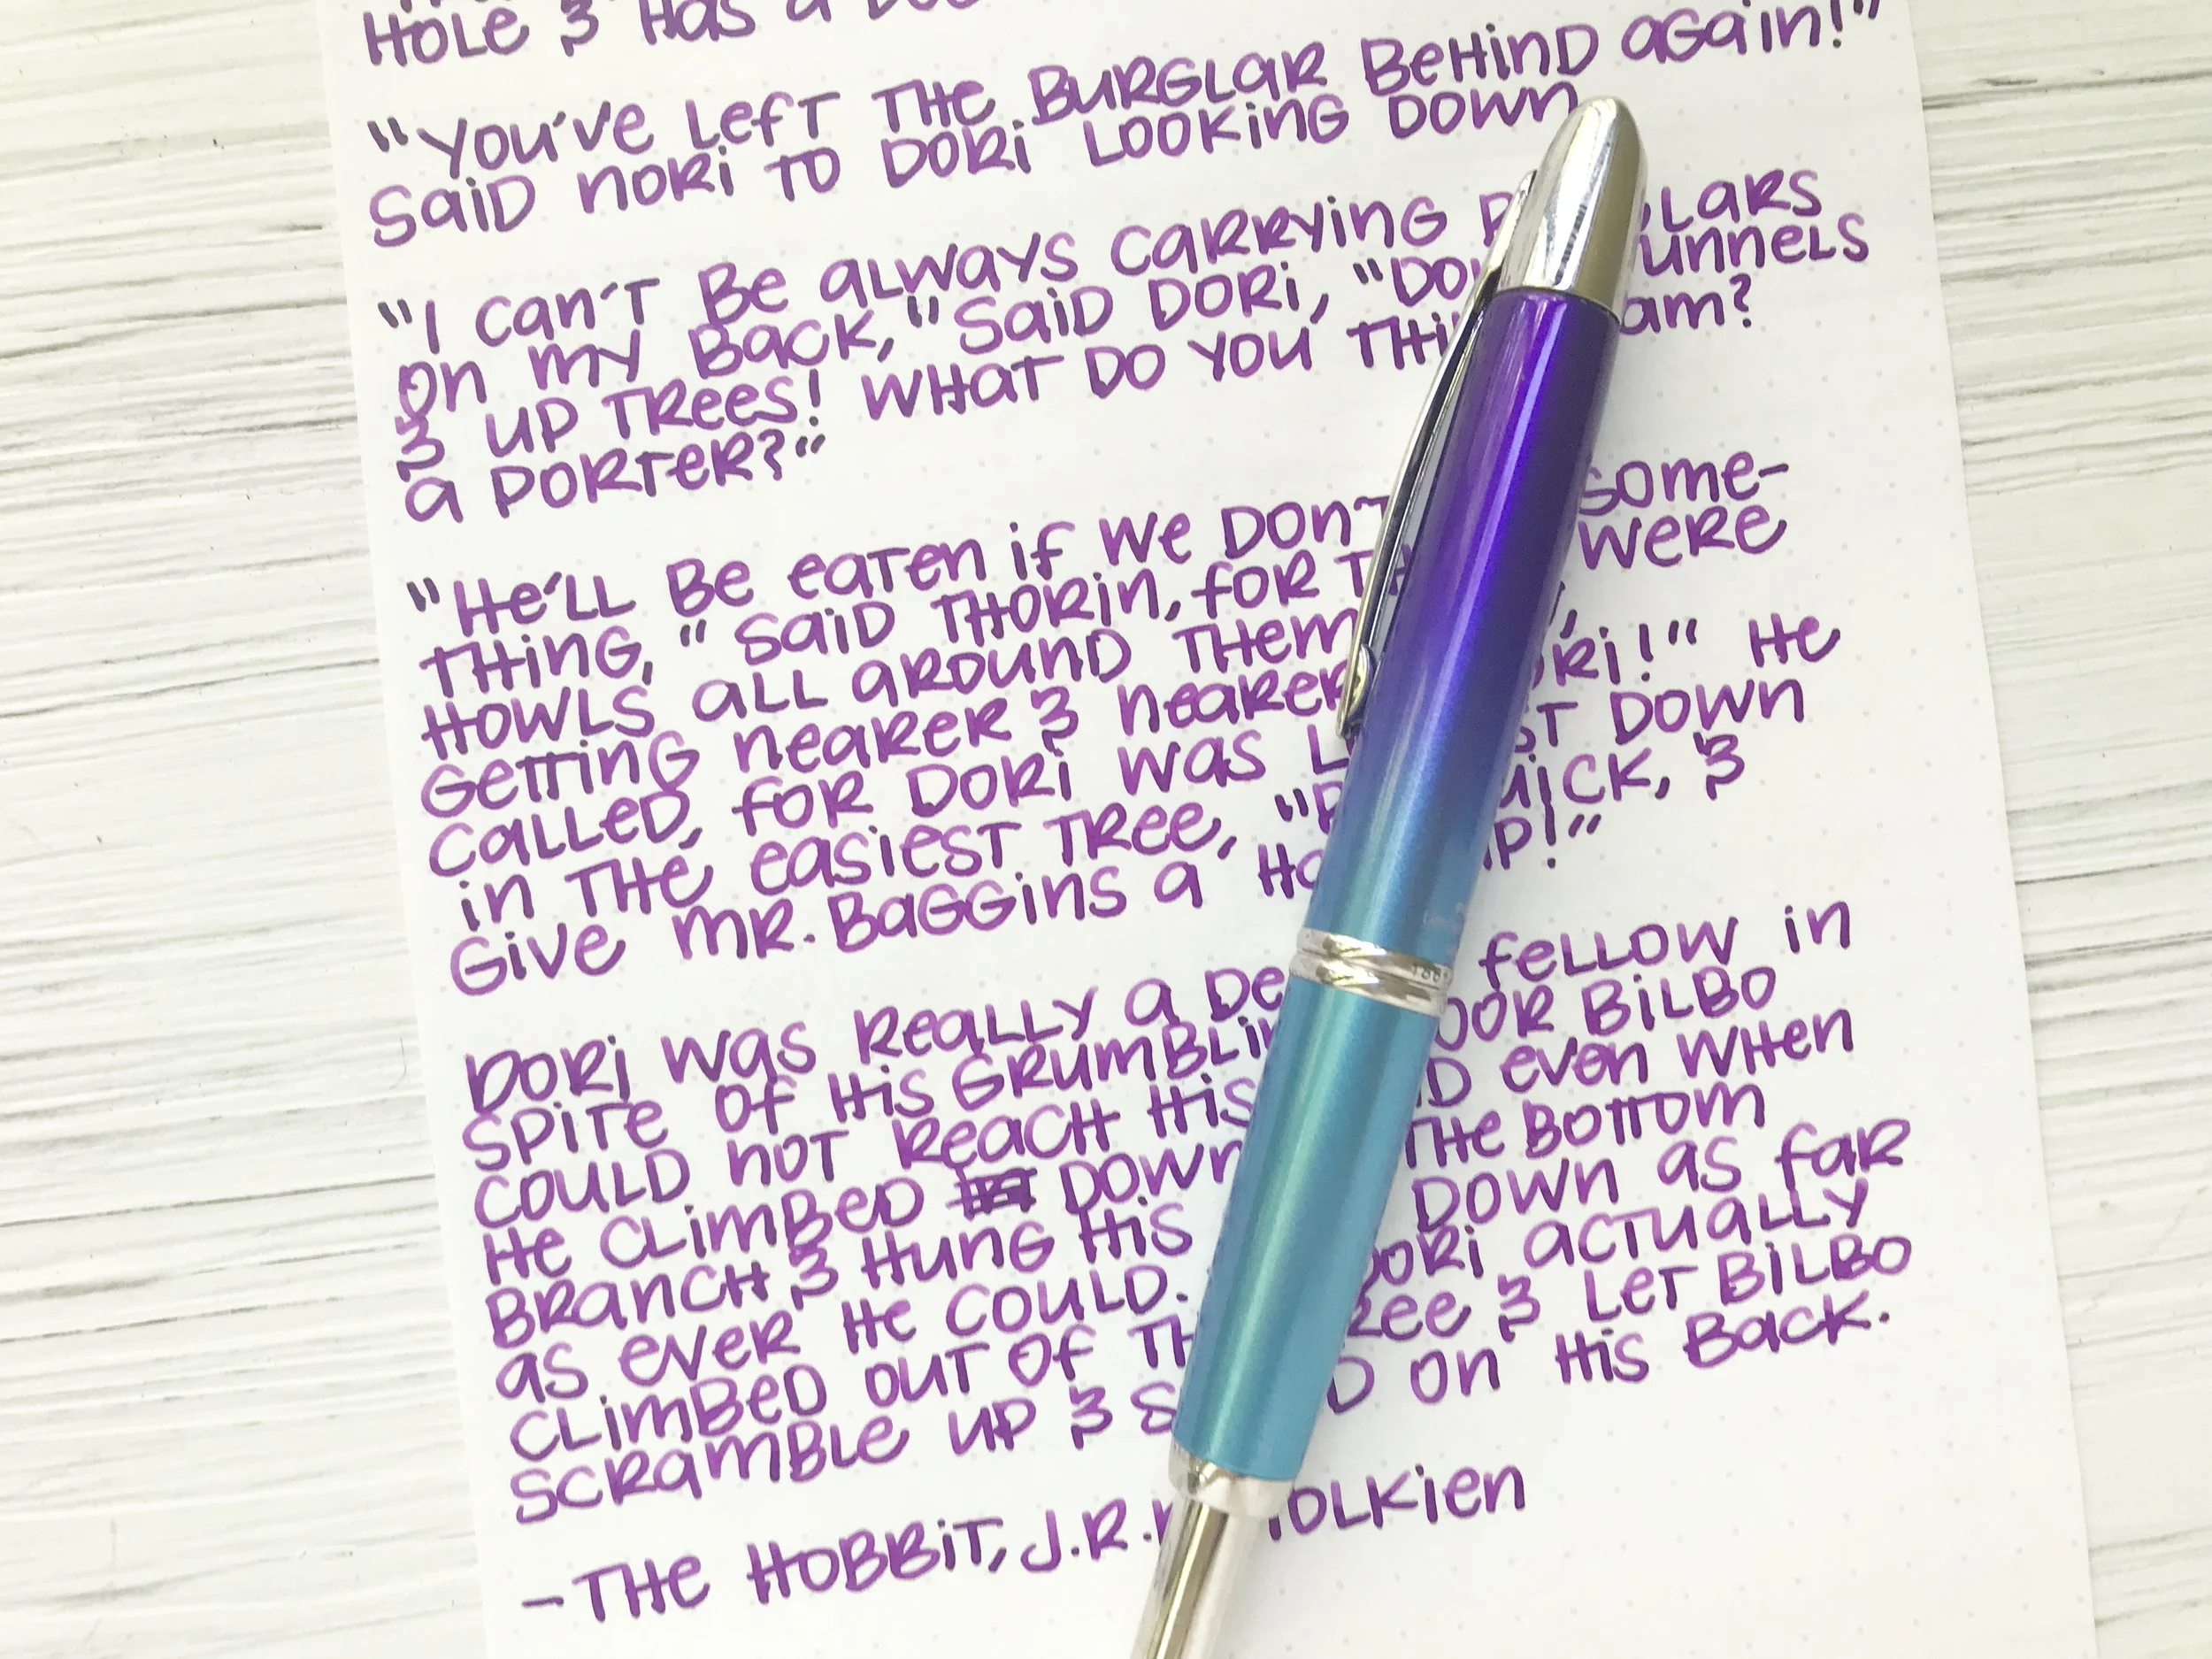 HOLE & HAS a
"YOU'VE LEFT THE BURGLAR BEHIND AGAIN!"
SAID NORI TO DORI LOOKING DOWN.
"I CAN'T BE ALWAYS CARRYING
ON MY BACK," SAID DORI, "DOWN TUNNELS
& UP TREES! WHAT DO YOU THINK I am?
A PORTER?"
"HE'LL BE EATEN IF WE DON'T SOME-
THING," SAID THORIN, FOR THERE WERE
HOWLS ALL AROUND THEM NOW,
GETTING NEARER & NEARER. "DORI!" HE
CALLED, FOR DORI WAS LOWEST DOWN
IN THE EASIEST TREE, "BE QUICK, &
GIVE MR. BAGGINS A HAND UP!"
DORI WAS REALLY A DECENT FELLOW IN
SPITE OF HIS GRUMBLING. POOR BILBO
COULD NOT REACH HIS HAND EVEN WHEN
HE CLIMBED DOWN TO THE BOTTOM
BRANCH & HUNG HIS DOWN AS FAR
AS EVER HE COULD. SO DORI ACTUALLY
CLIMBED OUT OF THE TREE & LET BILBO
SCRAMBLE UP & STAND ON HIS BACK.
-THE HOBBIT, J.R.R. TOLKIEN